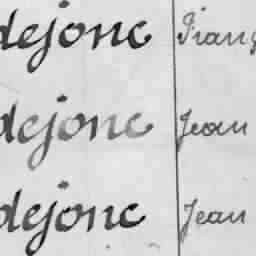 dejonc Franç
dejonc Jean
dejonc Jean